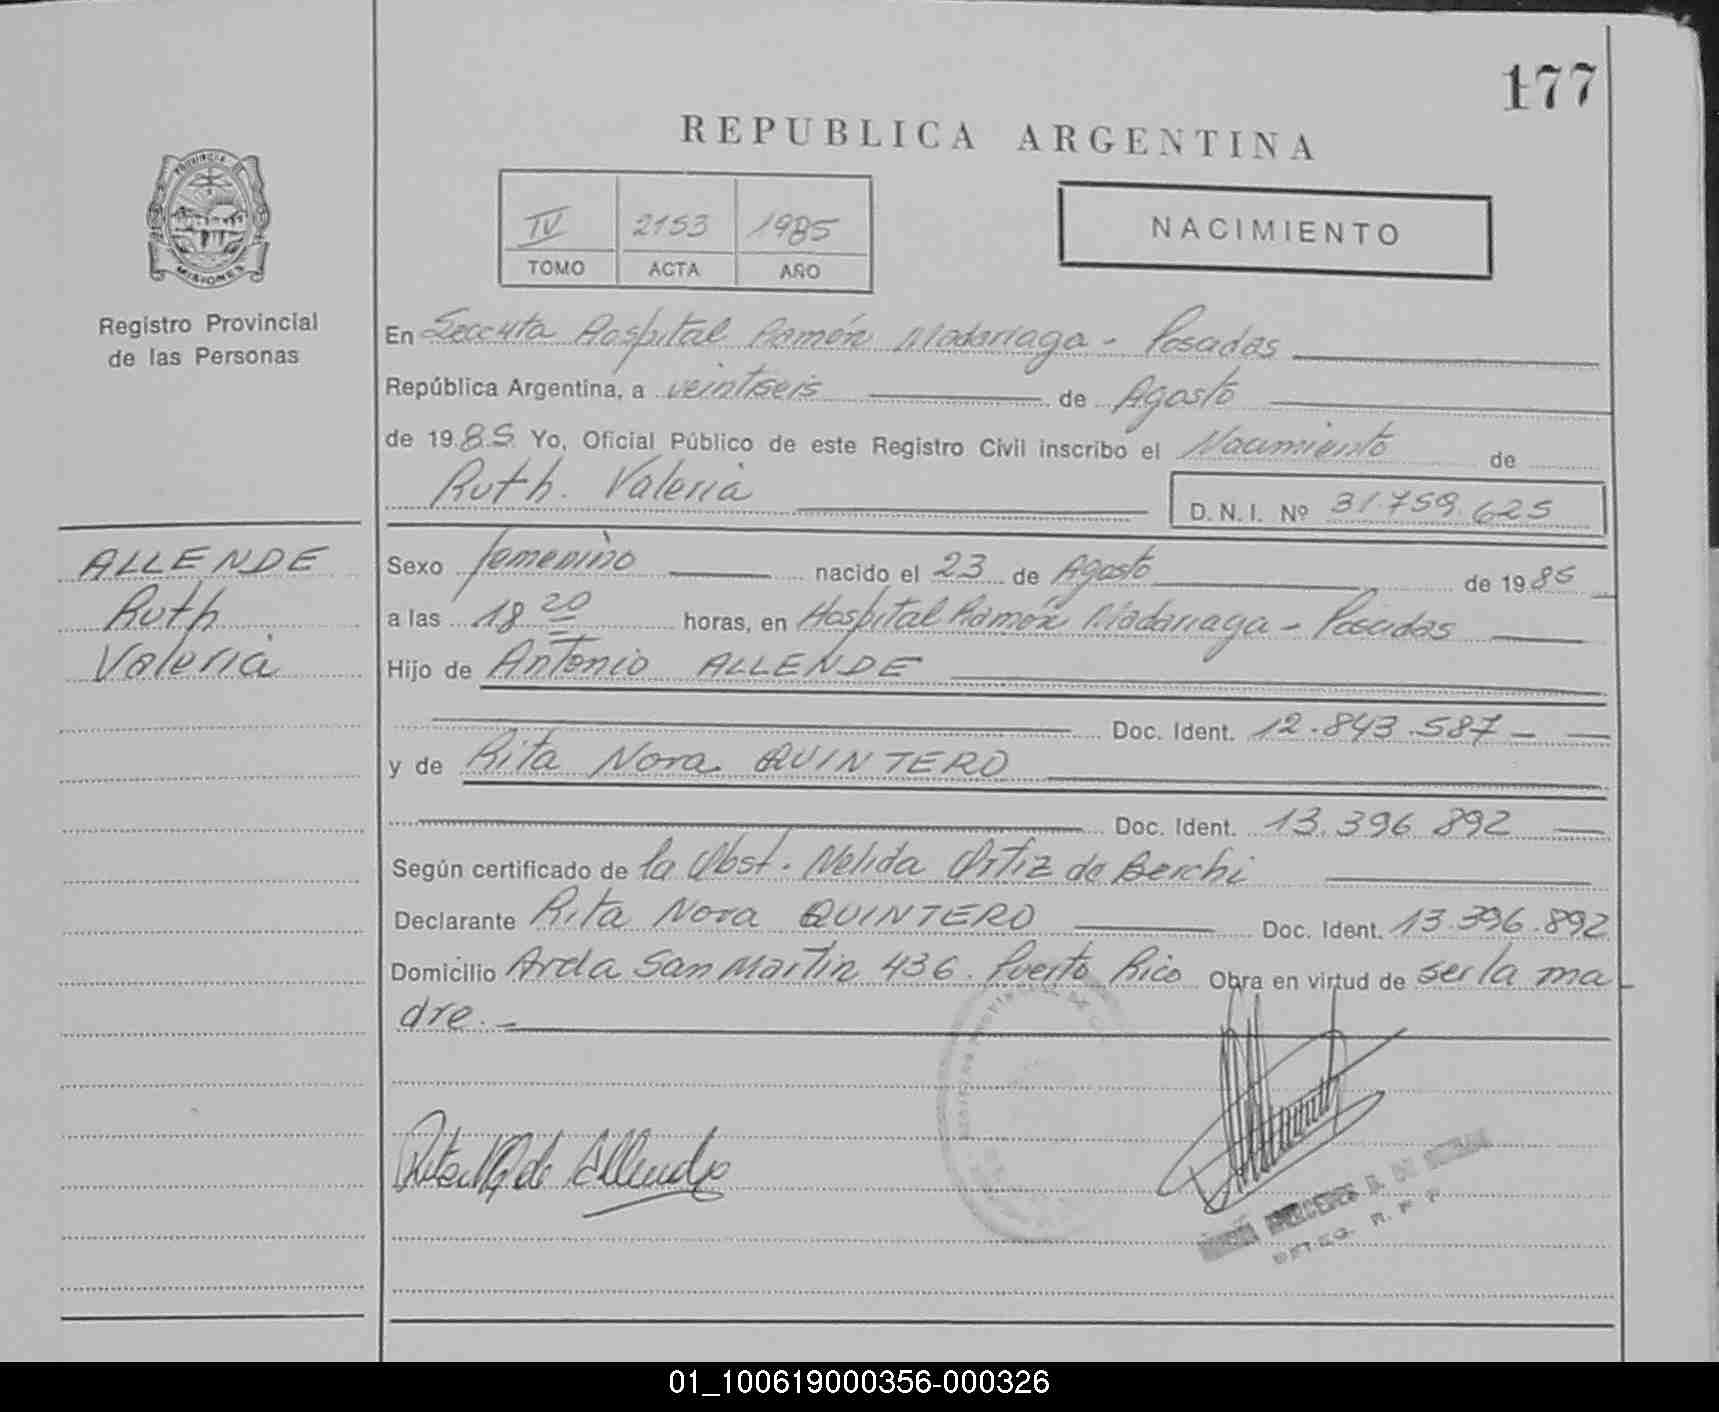 177
REPUBLICA ARGENTINA
PROVINCIA DE
MISIONES
Registro Provincial
de las Personas
IV 2153 1985
TOMO ACTA AÑO
NACIMIENTO
En Hospital Ramón Madariaga - Posadas
República Argentina, a veintiseis de Agosto
de 1985 Yo, Oficial Público de este Registro Civil inscribo el Nacimiento de
Ruth Valeria
D. N. I. Nº 31.759.625
ALLENDE
Ruth
Valeria
Sexo femenino nacido el 23 de Agosto de 1985
a las 18 20 horas, en Hospital Ramón Madariaga - Posadas
Hijo de Antonio ALLENDE
Doc. Ident. 12.843.587 -
y de Rita Nora QUINTERO
Doc. Ident. 13.396.892
Según certificado de la Obst. Nelida Ortiz de Berchi
Declarante Rita Nora QUINTERO Doc. Ident. 13.396.892
Domicilio Avda San Martin 436. Puerto Rico Obra en virtud de ser la ma
dre. -
de Allende
01_100619000356-000326